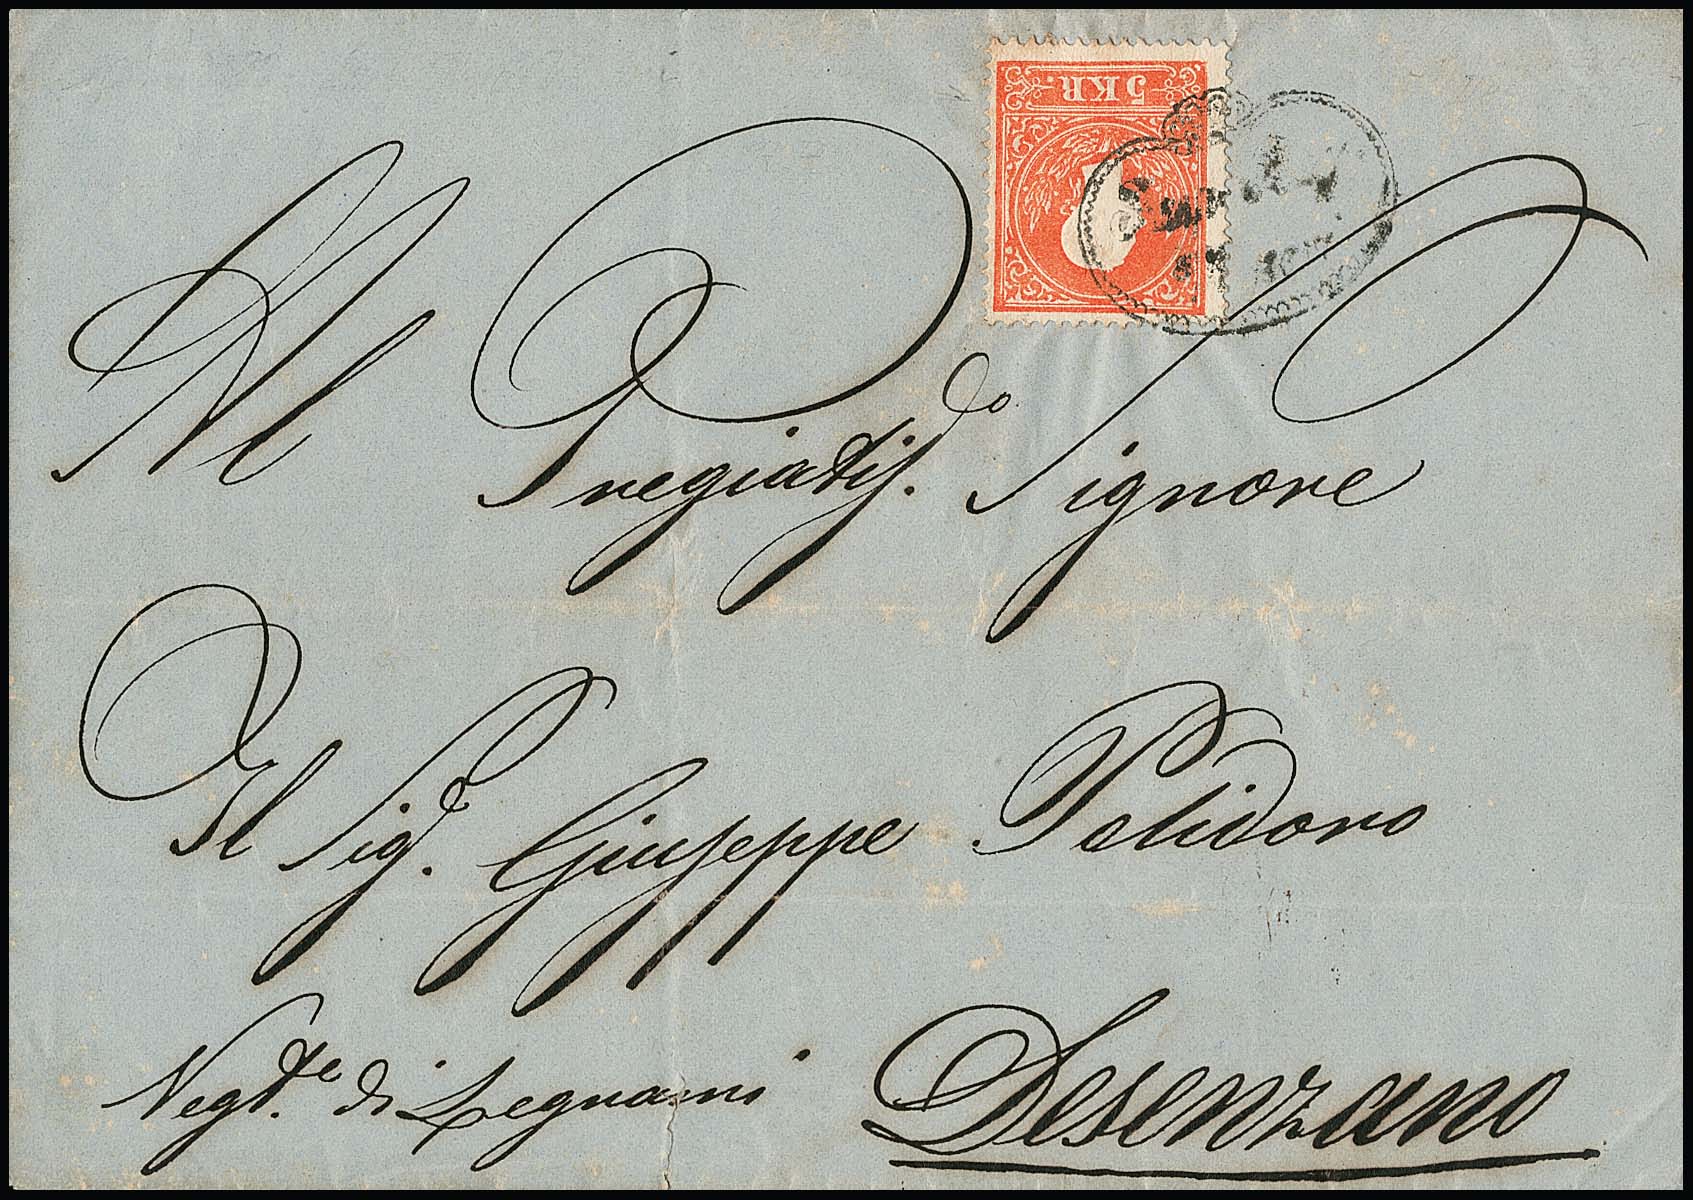 5 KR.
Al Pregiatis.do Signore
Il Sig.r Giuseppe Polidoro
Negt.te di Legnami Desenzano